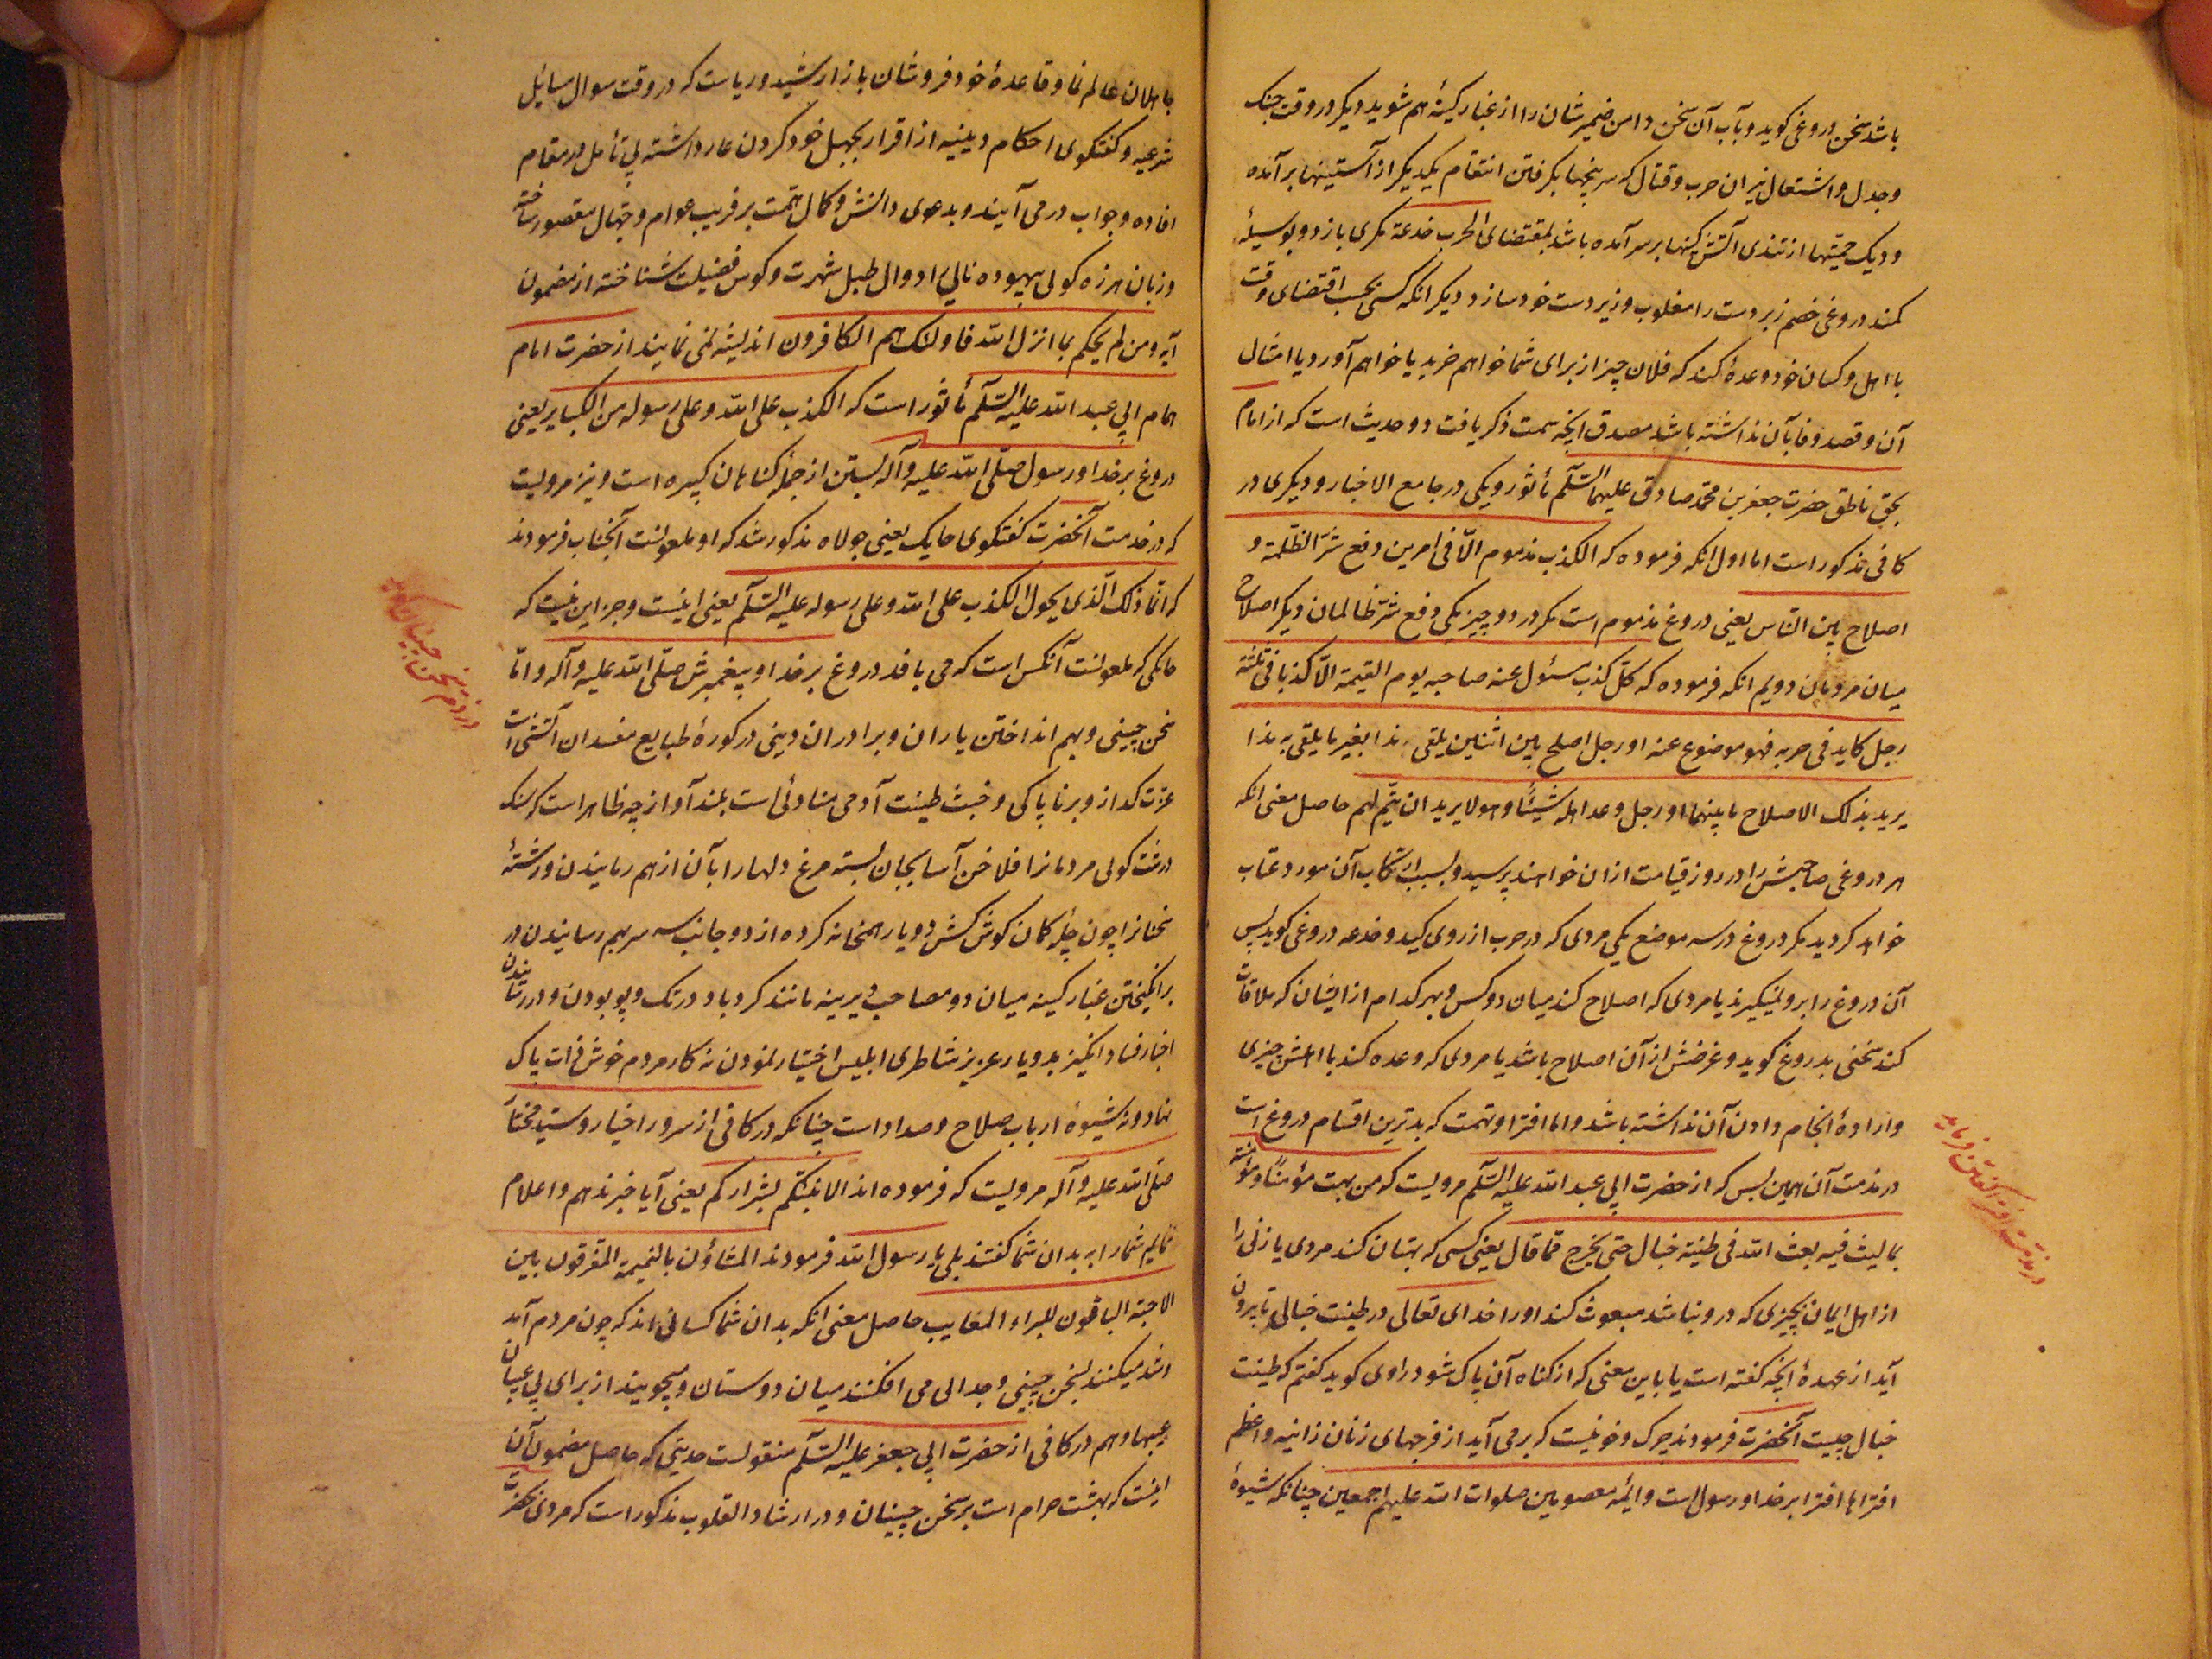 باشد سخن دروغی کوید و بآب آن سخن دامن ضمیرشان را از غبار کینهٔ هم شوید دیکر در وقت جنک
و جدل و اشتعال نیران حرب و قتال که سرپنجها بکرفتن انتقام یکدیکر از آستینها برآمده
و دیک حمیّتها از تندی آتش کینها بر سر آمده باشد بمقتضای الحرب خدعة مکری بازد و بوسیلهٔ
کمند دروغی خصم زبردست را مغلوب و زیردست خود سازد دیکر انکه کسی بحسب اقتضای وقت
با اهل و کسان خود وعدهٔ کند که فلان چیز از برای شما خواهم خرید یا خواهم آورد یا امثال
آن و قصد وفا بآن نداشته باشد مصدق انچه سمت ذکر یافت دو حدیث است که از امام
بحق ناطق حضرت جعفر بن محمّد صادق علیهما السّلم مأثور و یکی در جامع الاخبار و دیکری در
کافی مذکور است اما اول انکه فرموده که الکذب مذموم الّا فی امرین دفع شرّ الظّلمة و
اصلاح بین النّاس یعنی دروغ مذموم است مکر در دو چیز یکی دفع شرّ ظالمان دیکر اصلاح
میان مردمان دویم انکه فرموده که کلّ کذب مسئول عنه صاحبه یوم القیمة الّا کذبا فی ثلثة
رجل کاید فی حربه فهو موضوع عنه او رجل اصلح بین اثنین یلقی هذا بغیر ما یلقی به هذا
یرید بذلک الاصلاح ما بینهما او رجل وعد اهله شیئا و هو لا یرید ان یتمّ لهم حاصل معنی انکه
هر دروغی صاحبش را در روز قیامت ازان خواهند پرسید و بسبب ارتکاب آن مورد عتاب
خواهد کردید مکر دروغ در سه موضع یکی مردی که در حرب از روی کید و خدعه دروغی کوید پس
آن دروغ را برو نمیکیرند یا مردی که اصلاح کند میان دو کس و بهر کدام از ایشان که ملاقات
کند سخنی بدروغ کوید و غرضش از آن اصلاح باشد یا مردی که وعده کند با اهلش چیزی
و ارادهٔ انجام دادن آن نداشته باشد و اما افترا و تهمت که بدترین اقسام دروغ است
در مذمت آن همین بس که از حضرت ابی عبد الله علیه السّلم مرویست که من بهت مؤمنا و مؤمنة
بما لیس فیه بعث الله فی طینة خبال حتی یخرج مما قال یعنی کسی که بهتان کند مردی یا زنی را
از اهل ایمان بچیزی که درو نباشد مبعوث کند او را خدای تعالی در طینت خبالی تا بیرون
آید از عهدهٔ انچه کفته است یا باین معنی که از کناه آن پاک شود راوی کوید کفتم که طینت
خبال چیست آنحضرت فرمودند چرک و خونیست که برمی آید از فرجهای زنان زانیه و اعظم
افتراها افترا بر خدا و رسول است و ایمهٔ معصومین صلوات الله علیهم اجمعین چنانکه شیوهٔ
در مذمت افترا کفتن فرماید
جاهلان عالم نما و قاعدهٔ خودفروشان بازار شید و ریاست که در وقت سوال مسایل
شرعیه و کفتکوی احکام دینیه از اقرار بجهل خود کردن عار داشته بی تأمل در مقام
افاده و جواب درمی آیند و بدعوی دانش و کمال همت بر فریب عوام و جهال مقصور ساخته
و زبان هرزه کوئی بیهوده نالی را دوال طبل شهرت و کوس فضیلت شناخته از مضمون
آیه و من لم یحکم بما انزل الله فاولئک هم الکافرون اندیشه نمی نمایند از حضرت امام
همام ابی عبد الله علیه السّلم مأثور است که الکذب علی الله و علی رسوله من الکبایر یعنی
دروغ بر خدا و رسول صلّی الله علیه و آله بستن از جملهٔ کناهان کبیره است و نیز مرویست
که در خدمت آنحضرت کفتکوی حایک یعنی جولاه مذکور شد که او ملعونست آنجناب فرمودند
که انّما ذلک الّذی یحول الکذب علی الله و علی رسوله علیه السّلم یعنی اینست و جز این نیست که
حایکی که ملعونست آنکس است که می بافد دروغ بر خدا و پیغمبرش صلّی الله علیه و آله و امّا
سخن چینی و بهم انداختن یاران و برادران دینی در کورهٔ طبایع مفسدان آتشی است
عزت کداز و بر ناپاکی و خبث طینت آدمی منادئی است بلند آواز چه ظاهر است که سنک
درشت کوئی مردمانرا فلاخن آسا بجان بسته مرغ دلها را بآن از هم رمایندن و رشتهٔ
سخنانرا چون چلّه کمان کوش کش دو یار همخانه کرده از دو جانب سر بهم رسانیدن و در
برانکیختن غبار کینه میان دو مصاحب دیرینه مانند کردباد در تک و پو بودن و در رسانیدن
اخبار فساد انکیز بدو یار عزیز شاطری ابلیس اختیار نمودن نه کار مردم خوش ذات پاک
نهاد و نه شیوهٔ ارباب صلاح و سداد است چنانکه در کافی از سرور اخیار و سیّد مختار
صلّی الله علیه و آله مرویست که فرموده اند الا انبئکم بشرارکم یعنی آیا خبر ندهم و اعلام
نمایم شما را به بدان شما کفتند بلی یا رسول الله فرمودند المشاؤن بالنمیمة المفرقون بین
الاحبة الباغون للبراء المعایب حاصل معنی انکه بدان شما کسانی اند که چون مردم آمد
شد میکنند بسخن چینی و جدائی می افکنند میان دوستان و میجویند از برای بی عیبان
عیبها و هم در کافی از حضرت ابی جعفر علیه السّلم منقولست حدیثی که حاصل مضمون آن
اینست که بهشت حرام است بر سخن چینان و در ارشاد القلوب مذکور است که مردی بحضرت
در ذم سخن چینان کوید